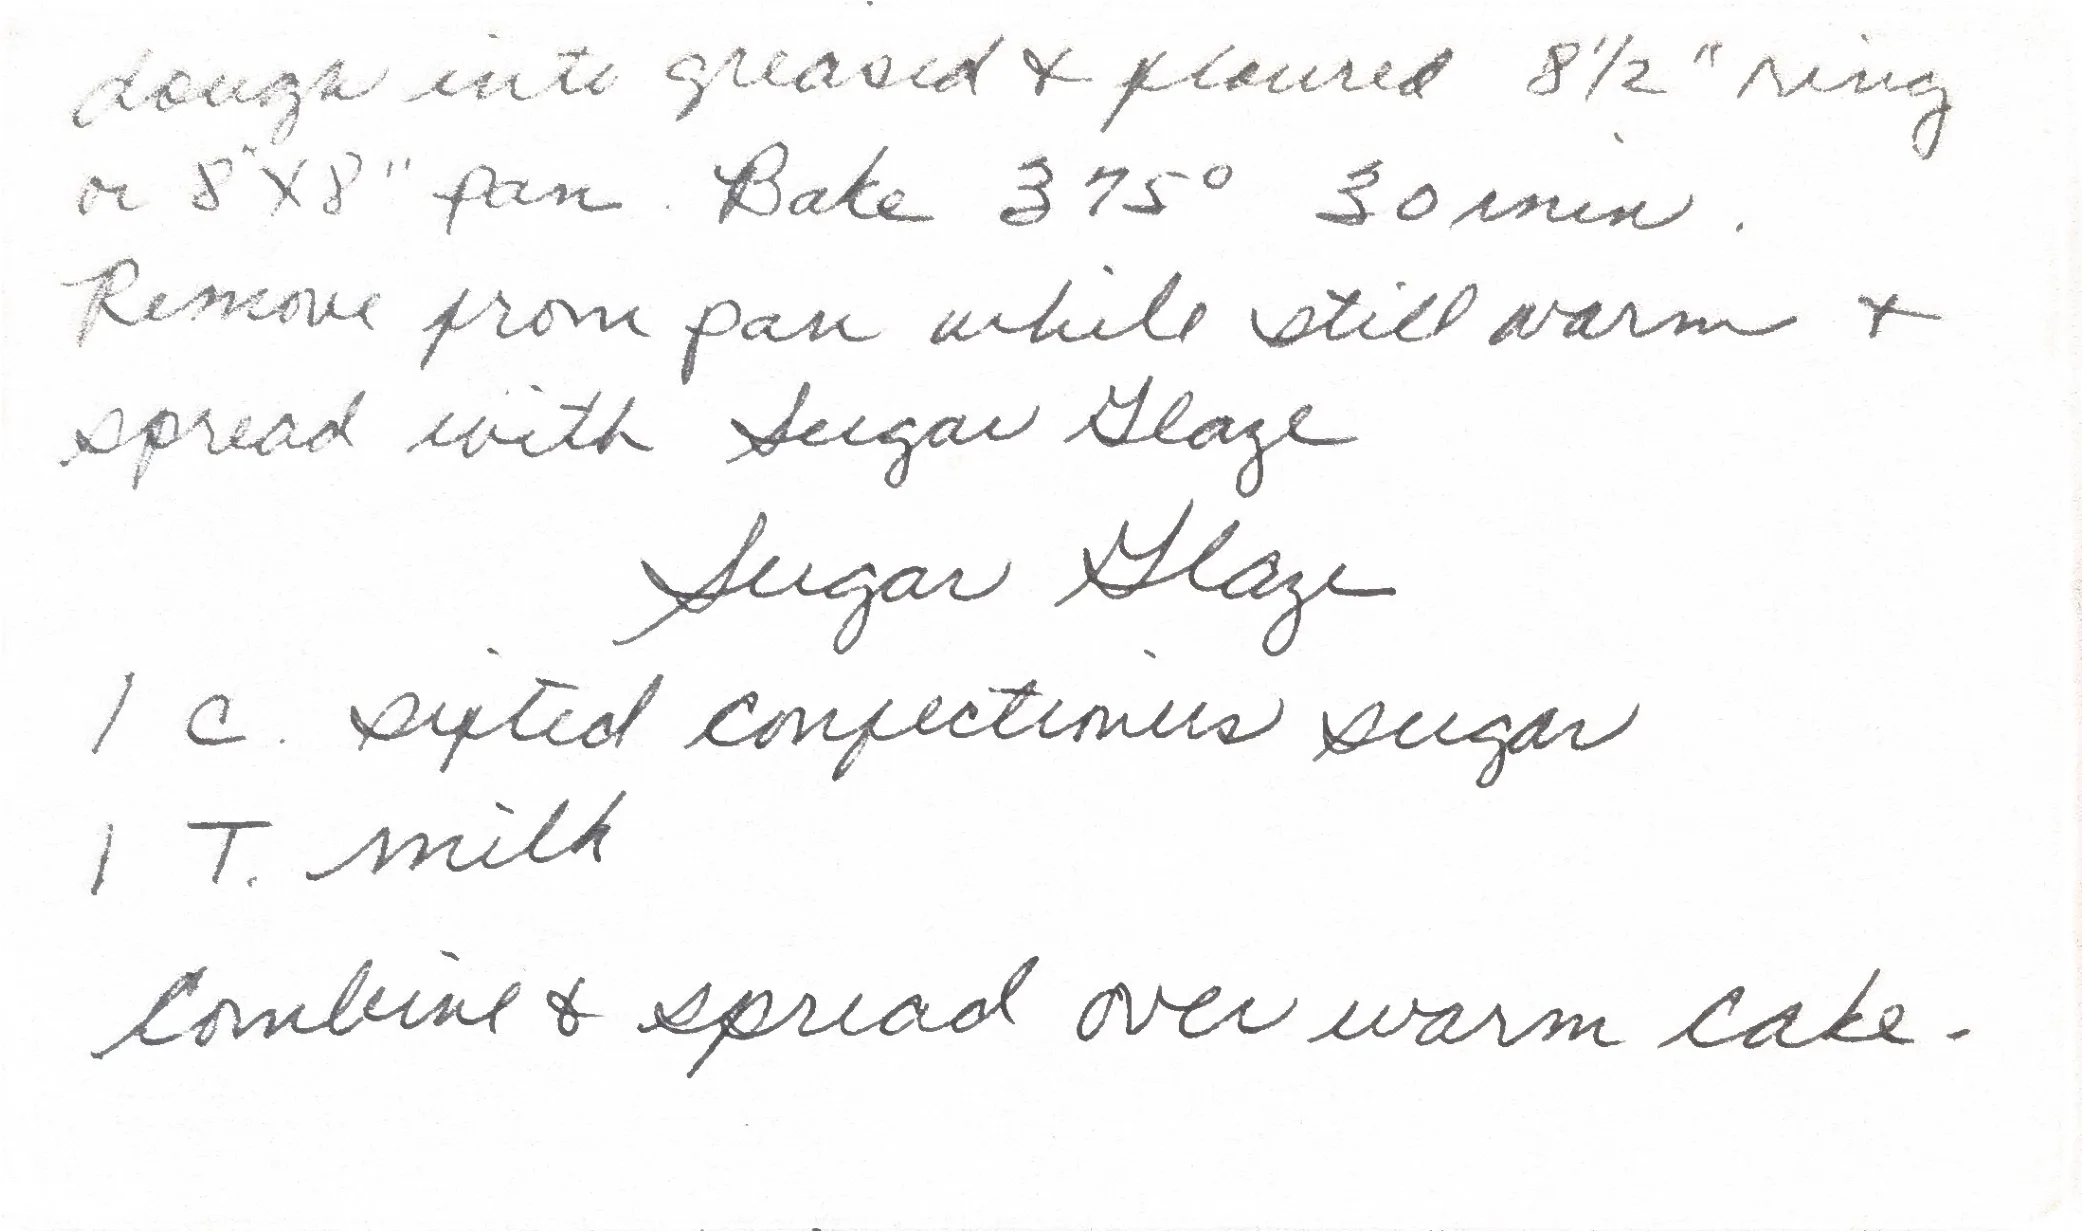 dough into greased & floured 8 1/2" ring
or 8"X8" pan. Bake 375° 30 min.
Remove from pan while still warm &
spread with Sugar Glaze
Sugar Glaze
1 C. sifted confectioners sugar
1 T. milk
Combine & spread over warm cake.